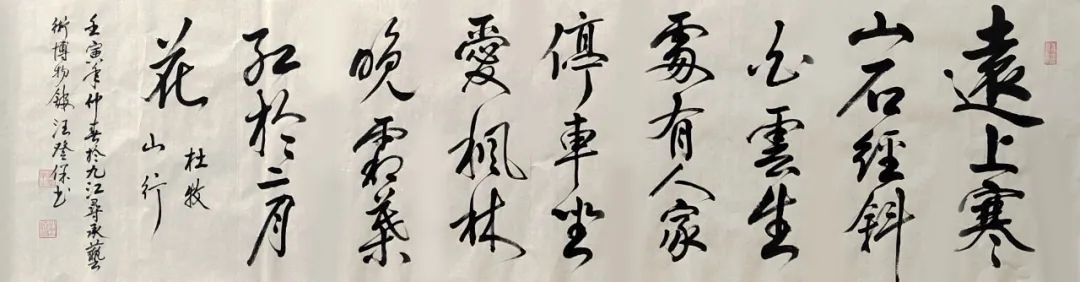 遠上寒
山石經斜
白雲生
處有人家
停車坐
愛楓林
晚霜葉
紅於二月
花
杜牧
山行
壬寅年仲春於九江尋承藝
術博物館汪登保書